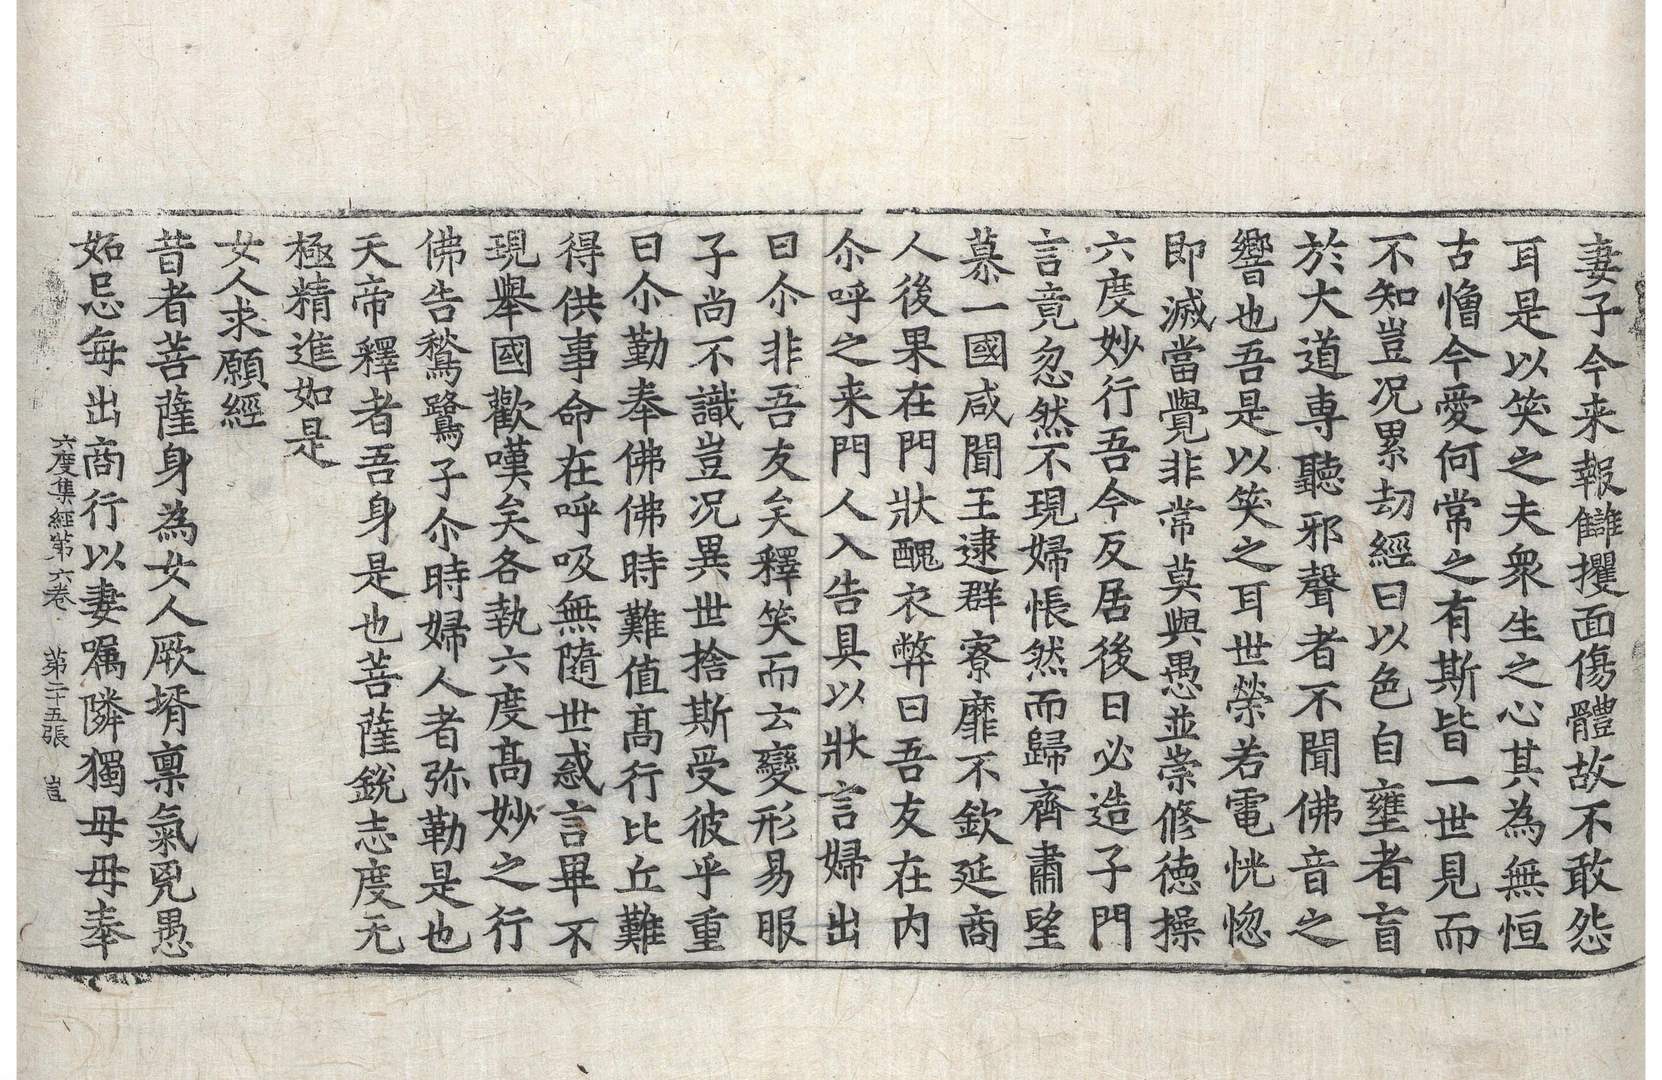 妻子今来報讎攫面傷體故不敢怨
耳是以笑之夫衆生之心其為無恒
古憎今愛何常之有斯皆一世見而
不知豈况累劫經曰以色自壅者盲
於大道専聽邪聲者不聞佛音之
響也吾是以笑之耳世榮若電恍惚
即滅當覺非常莫與愚並崇修德操
六度妙行吾今反居後日必造子門
言竟忽然不現婦悵然而歸齊肅望
慕一國咸聞王逮群寮靡不欽延商
人後果在門狀醜衣弊曰吾友在内
尒呼之来門人入告具以狀言婦出
曰尒非吾友矣釋笑而云變形易服
子尚不識豈况異世捨斯受彼乎重
曰尒勤奉佛佛時難值髙行比丘難
得供事命在呼吸無隨世惑言畢不
現舉國歡嘆矣各執六度髙妙之行
佛告鶖鷺子尒時婦人者弥勒是也
天帝釋者吾身是也菩薩銳志度无
極精進如是
女人求願經
昔者菩薩身為女人厥壻禀氣兇愚
妬忌每出商行以妻囑隣獨母母奉
六度集經第六卷　第二十五張　豈